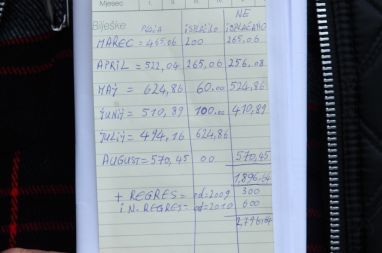 Mjesec I. II.
NE
Bilješke PLAĆA ISPLAĆENO
MAREC = 465,06 200 265,06
APRIL = 522,04 265,06 256,08
MAJ = 624,86 60.00 524,86
JUNIJ = 510,89 100.00 410,89
JULIJ = 494,16 624,86
AUGUST = 570,45 00 570,45
1,896.64
+ REGRES = od=2009 300
IN-REGRES= od=2010 600
2,796,64